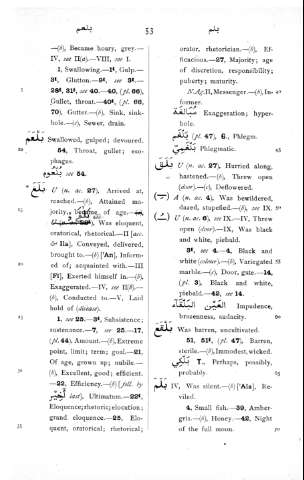 بلعم
53
بلم
—(b), Became hoary, grey.—
IV, see II(a).—VIII, see I.
1, Swallowing.—1ᵗ, Gulp.—
3ᵗ, Glutton.—9ᵗ, see 3ᵗ.—
28ᵗ, 31ᵗ, see 40.—40, (pl. 66),
Gullet, throat.—40ᵗ, (pl. 66,
70), Gutter.—(b), Sink, sink-
hole.—(c), Sewer, drain.
بلعم Swallowed, gulped; devoured.
54, Throat, gullet; eso-
phagus.
بلعوم see 54.
بلغ U (n. ac. 27), Arrived at,
reached.—(b), Attained ma-
jority, became of age.—
Was eloquent,
oratorical, rhetorical.—II [acc.
& IIa], Conveyed, delivered,
brought to.—(b) ['An], Inform-
ed of; acquainted with.—III
[Fī], Exerted himself in.—(b),
Exaggerated.—IV, see II(b).—
(b), Conducted to.—V, Laid
hold of (disease).
1, see 25.—3ᵗ, Subsistence;
sustenance.—7, see 25.—17,
(pl. 44), Amount.—(b), Extreme
point, limit; term; goal.—21,
Of age, grown up; nubile.—
(b), Excellent, good; efficient.
—22, Efficiency.—(b) [foll. by
last), Ultimatum.—22ᵗ,
Eloquence; rhetoric; elocution;
grand eloquence.—25, Elo-
quent, oratorical; rhetorical;
orator, rhetorician.—(b), Ef-
ficacious.—27, Majority; age
of discretion, responsibility;
puberty; maturity.
N.Ag. II, Messenger.—(b), In-
former.
مبالغة Exaggeration; hyper-
bole.
بلغم (pl. 47), 6, Phlegm.
بلغمي Phlegmatic.
بلق U (n. ac. 27), Hurried along,
hastened.—(b), Threw open
(door).—(c), Deflowered.
A (n. ac. 4), Was bewildered,
dazed, stupefied.—(b), see IX.
U (n. ac. 6), see IX.—IV, Threw
open (door).—IX, Was black
and white, piebald.
3ᵗ, see 4.—4, Black and
white (colour).—(b), Variegated
marble.—(c), Door, gate.—14,
(pl. 3), Black and white,
piebald.—42, see 14.
Impudence,
brazenness, audacity.
بلقع Was barren, uncultivated.
51, 51ᵗ, (pl. 47), Barren,
sterile.—(b), Immodest, wicked.
بلكي T., Perhaps, possibly,
probably.
بلم IV, Was silent.—(b) ['Ala], Re-
viled.
4, Small fish.—39, Amber-
gris.—(b), Honey.—42, Night
of the full moon.